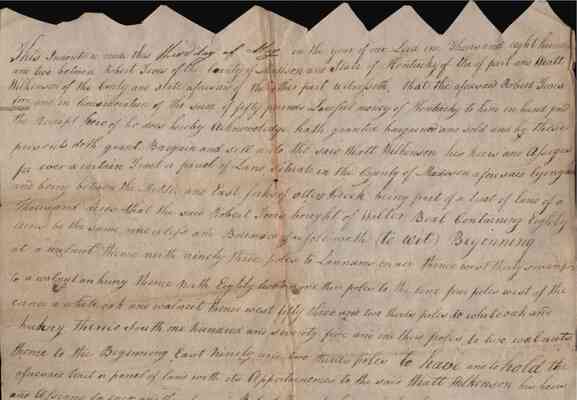 This Indenture made this third day of May in the year of our Lord one Thousand eight hundred
and two between Robert Tevis of the County of Madison and State of Kentucky of the of part and Miatt
Wilkenson of the County and State aforesaid of the other part witnesseth, that the aforesaid Robert Tevis
for and in Consideration of the sum of fifty pounds Lawful money of Kentucky to him in hand paid
the Receipt hereof he does hereby Acknowledge hath granted bargained and sold and by these
presents doth grant Bargain and sell unto the said Miatt Wilkenson his heirs and Assigns
for ever a certain Tract or parcel of Land situate in the County of Madison aforesaid lying
and being between the Middle and East forks of otter Creek being part of a Tract of land of a
Thousand acres that the said Robert Tevis bought of Boat Containing Eighty
acres be the same more or less and Bounded as followeth (to wit) Beginning
at a walnut thence north ninety three poles to corner thence west thirty
to a walnut thence North Eighty two and one third poles to the line four poles west of the
corner a white oak and walnut thence west fifty three and two thirds poles to white oak and
thence South one hundred and seventy five and one third poles, to two walnuts
thence to the Beginning East Ninety and two thirds poles to have and to hold the
aforesaid Tract or parcel of land with its Appurtenances to the said Miatt Wilkenson his heirs
and Assigns